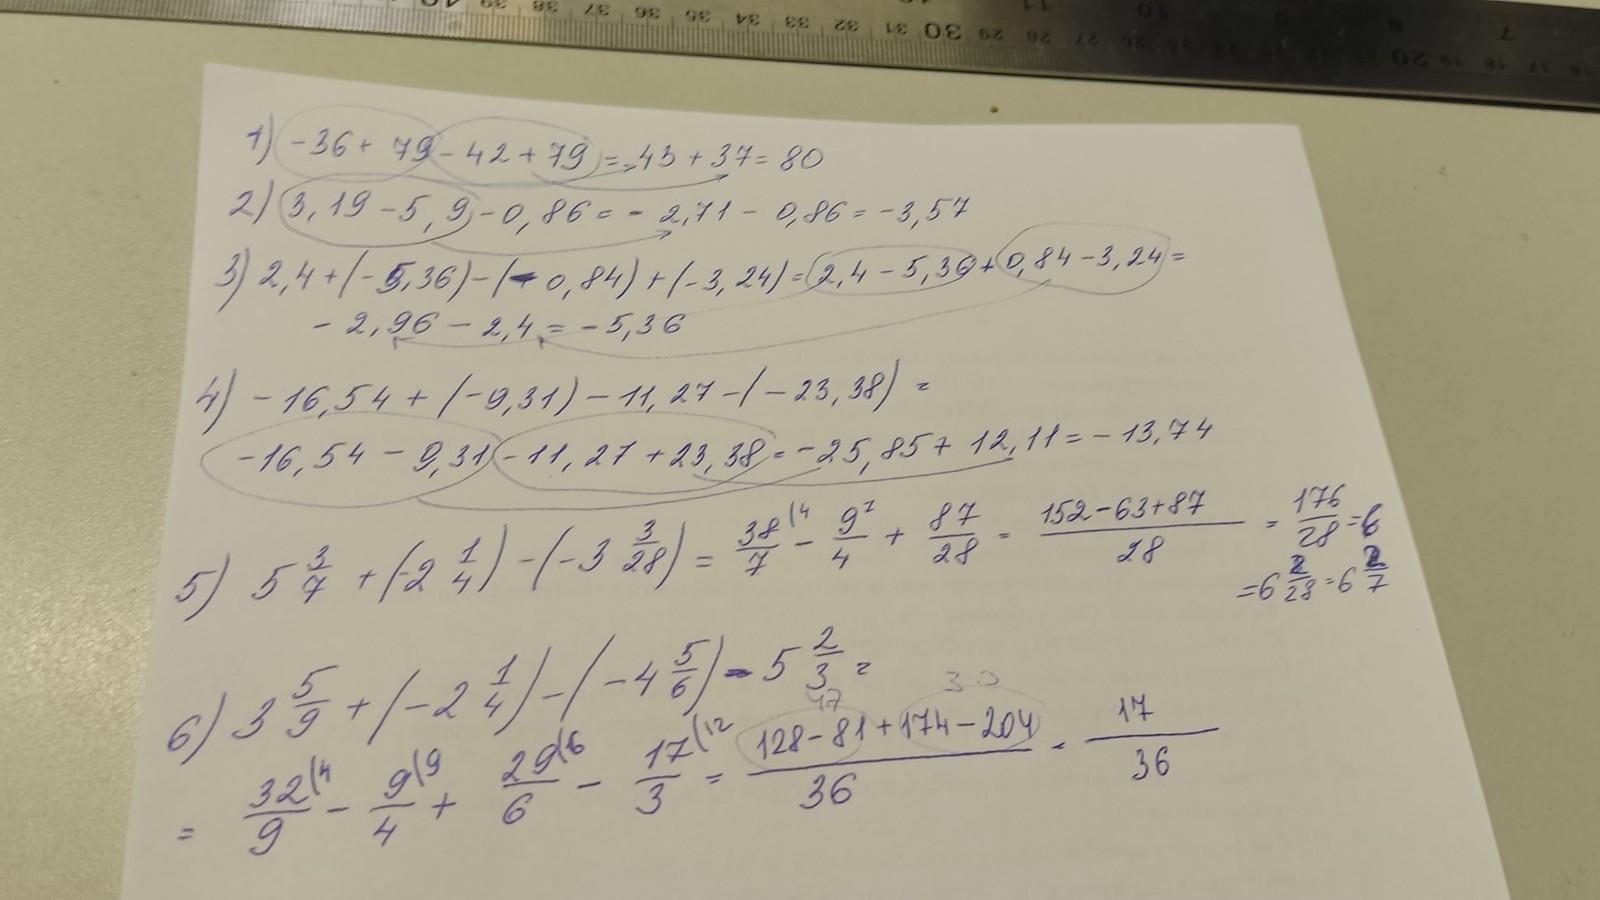 40 39 38 37 36 35 34 33 32 31 30 29 28 27 26 20 19 18 17 16
11 10 8 7
1) -36 + 79 - 42 + 79 = 43 + 37 = 80
2) 3,19 - 5,9 - 0,86 = - 2,71 - 0,86 = -3,57
3) 2,4 + (-5,36) - (-0,84) + (-3,24) = 2,4 - 5,36 + 0,84 - 3,24 =
- 2,96 - 2,4 = -5,36
4) -16,54 + (-9,31) - 11,27 - (-23,38) =
-16,54 - 9,31 - 11,27 + 23,38 = -25,85 + 12,11 = -13,74
5) 5 3/7 + (-2 1/4) - (-3 3/28) = 38/7 (4 - 9/4 7 + 87/28 = 152-63+87/28 = 176/28 = 6
= 6 8/28 = 6 2/7
6) 3 5/9 + (-2 1/4) - (-4 5/6) - 5 2/3 =
47 30
= 32/9 (4 - 9/4 (9 + 29/6 (6 - 17/3 (12 = 128-81+174-204/36 = 17/36